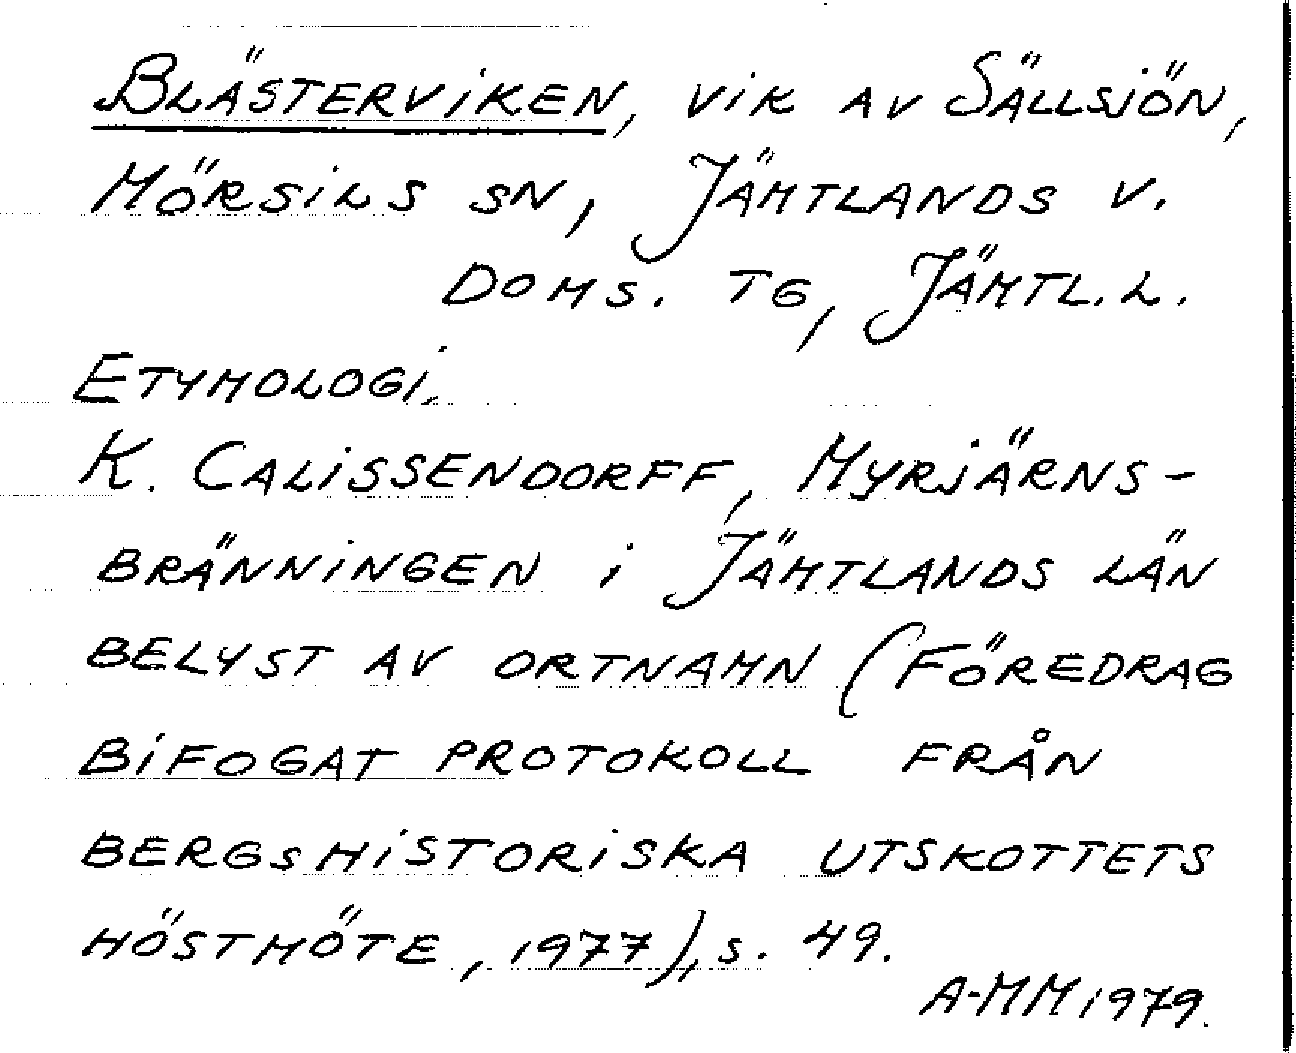 BLÄSTERVIKEN, VIK AV SÄLLSJÖN,
MÖRSILS SN, JÄMTLANDS V.
DOMS. TG, JÄMTL.L.
ETYMOLOGI.
K. CALISSENDORFF, MYRJÄRNS-
BRÄNNINGEN I JÄMTLANDS LÄN
BELYST AV ORTNAMN (FÖREDRAG
BIFOGAT PROTOKOLL FRÅN
BERGSHISTORISKA UTSKOTTETS
HÖSTMÖTE, 1977), S. 49.
A-MM 1979.